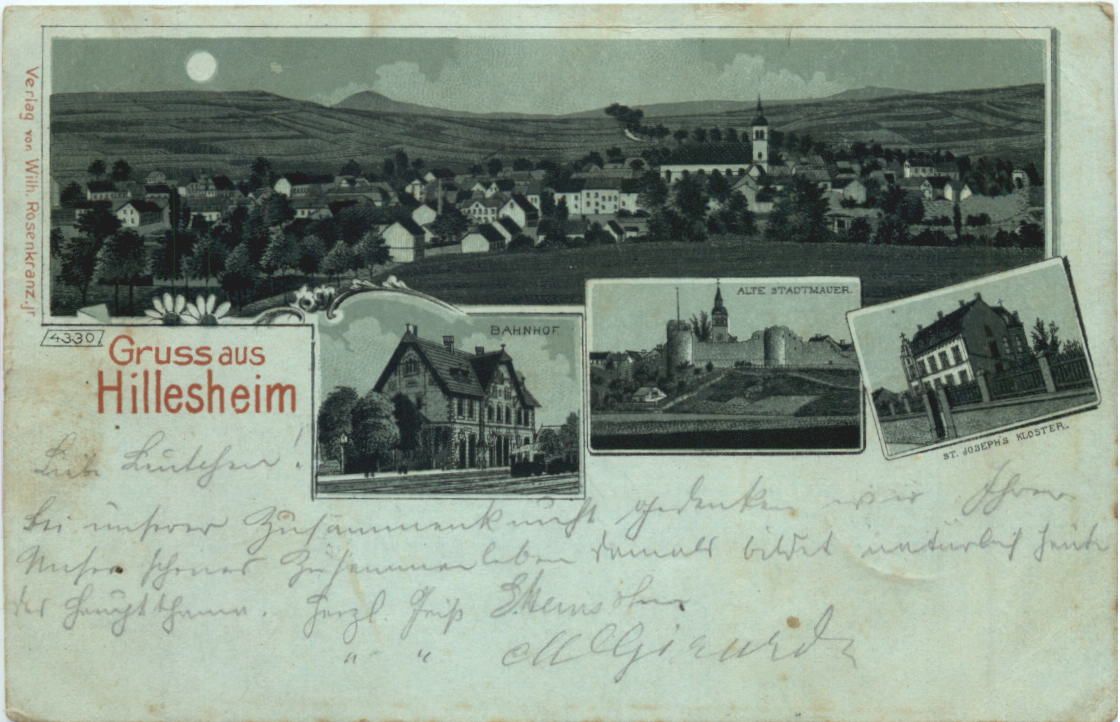 Verlag von Wilh. Rosenkranz. jr.
4330
Gruss aus
Hillesheim
BAHNHOF.
ALTE STADTMAUER.
ST. JOSEPH'S KLOSTER.
Liebe Leutchen!
Bei unserer Zusammenkunft gedenken wir Ihrer
Unser schönes Zusammenleben damals bildet natürlich heute
das Hauptthema. Herzl. Gruß
" "